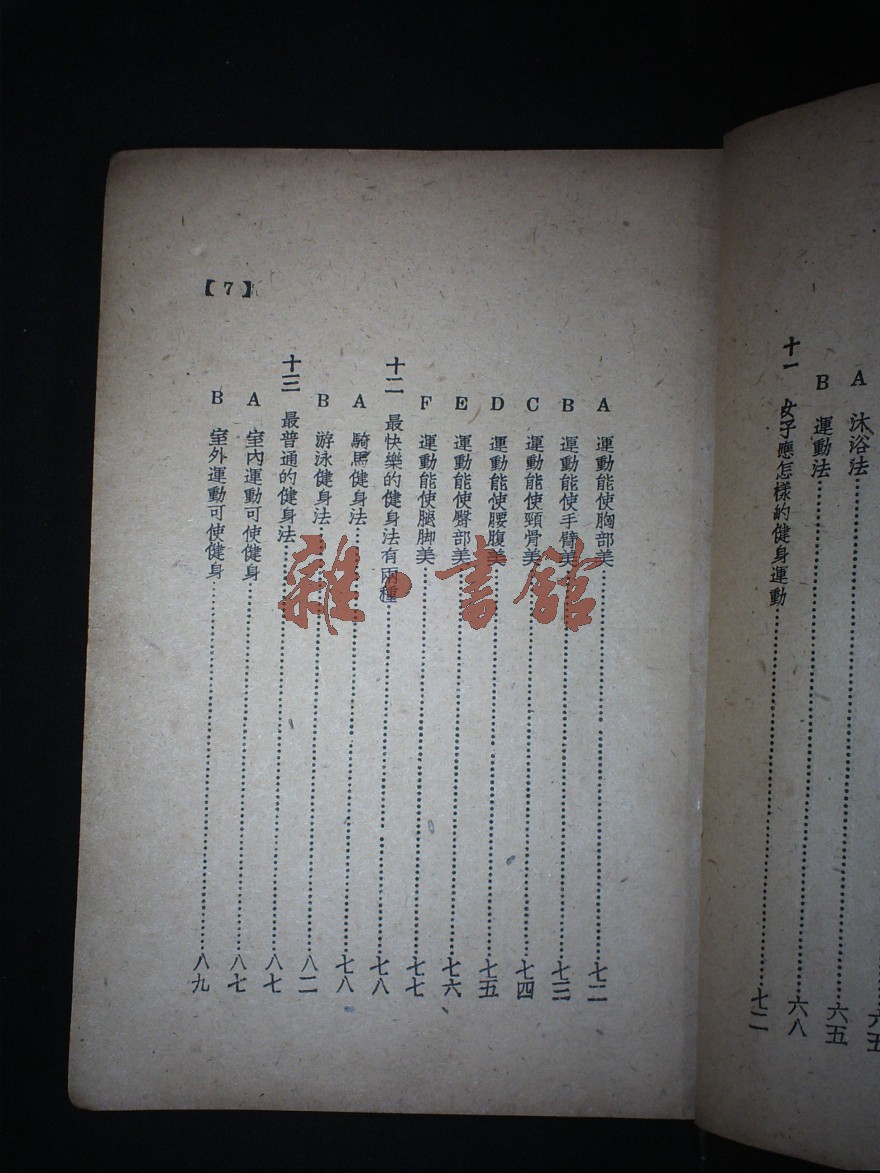 六五
A 沐浴法 六五
B 運動法 六八
十一 女子應怎樣的健身運動 七二
A 運動能使胸部美 七二
B 運動能使手臂美 七三
C 運動能使頸骨美 七四
D 運動能使腰腹美 七五
E 運動能使臀部美 七六
F 運動能使腿脚美 七七
十二 最快樂的健身法有兩種 七八
A 騎馬健身法 七八
B 游泳健身法 八二
十三 最普通的健身法 八七
A 室內運動可使健身 八七
B 室外運動可使健身 八九
【7】
雜·書館